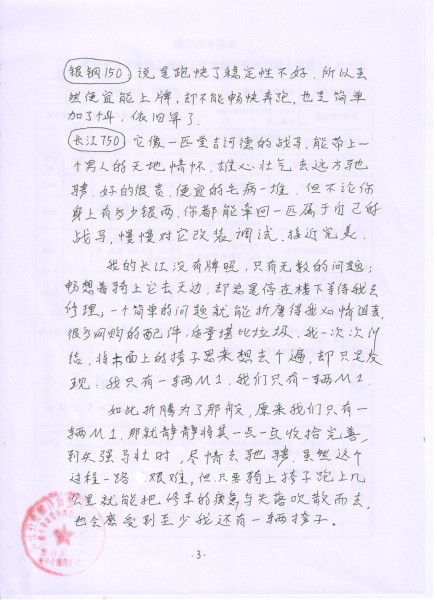 银钢150，说是跑快了稳定性不好，所以虽
然便宜能上牌，却不能畅快奔跑，也是简单
加了个斗，依旧算了。
长江750 它像一匹堂吉诃德的战马，能带上一
个男人的天地情怀，雄心壮气去远方驰
骋。好的很贵，便宜的毛病一堆，但不论你
身上有多少银两，你都能牵回一匹属于自己的
战马，慢慢对它改装调试，接近完美。
我的长江没有牌照，只有无数的问题；
畅想着骑上它去天边，却总是停在楼下等待我去
修理；一个简单的问题就能折磨得我心情沮丧，
很多网购的配件，质量堪比垃圾，我一次次纠
结，将市面上的挎子思来想去个遍，却只是发
现：我只有一辆M1，我们只有一辆M1。
如此折腾为了那般，原来我们只有一
辆M1，那就静静将其一点一点收拾完善，
到久强马壮时，尽情去驰骋。虽然这个
过程一路艰难，但只要骑上挎子跑上几
公里就能把修车的疲惫与失落吹散而去，
也会感受到至少我还有一辆挎子。
·3·